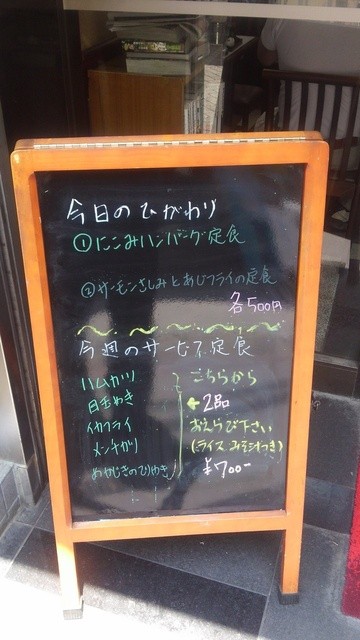 今日のひがわり
①にこみハンバーグ定食
②サーモンさしみとあじフライの定食
各500円
今週のサービス定食
ハムカツ
目玉やき
イカフライ
メンチカツ
めかじきのてりやき
こちらから
←2品
おえらび下さい
(ライス みそ汁つき)
¥700-